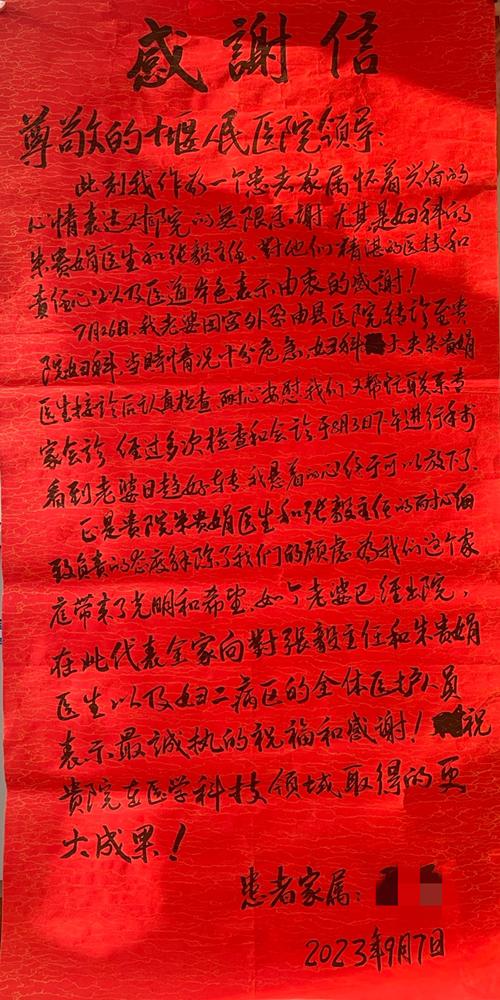 感謝信
尊敬的十堰人民医院领导：
此刻我作为一个患者家属怀着兴奋的
心情表达对郧院的無限感谢尤其是妇科的
朱贵娟医生和张毅主任、對他们精湛的医技和
责任心以及医道本色表示由衷的感謝！
7月26日、我老婆因宫外孕由县医院转诊至贵
院妇科，当時情况十分危急，妇科大夫朱贵娟
医生接診后认真检查、耐心安慰我们又帮忙联系专
家会診经过多次检查和会診于8月3日下午进行手术
看到老婆日趋好转我悬着的心终于可以放下了、
正是贵院朱贵娟医生和张毅主任的耐心细
致负责的态度解除了我们的顾虑为我们这个家
庭带来了光明和希望、如今老婆已经出院，
在此代表全家向對張毅主任和朱贵娟
医生以及妇二病区的全体医护人员
表示最誠执的祝福和感謝！祝
贵院在医学科技领域取得的更
大成果！
患者家属：
2023年9月7日